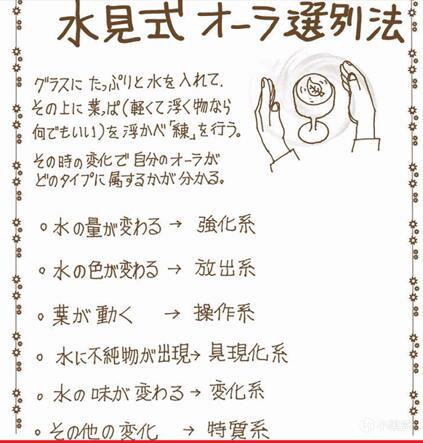 水見式 オーラ選別法
グラスに たっぷりと 水を入れて、
その上に葉っぱ(軽くて浮く物なら
何でもいい)を浮かべ「練」を行う。
その時の変化で自分のオーラが
どのタイプに属するかが分かる。
○ 水の量が変わる → 強化系
○ 水の色が変わる → 放出系
○ 葉が動く → 操作系
○ 水に不純物が出現→ 具現化系
○ 水の味が変わる→ 変化系
○ その他の変化 → 特質系